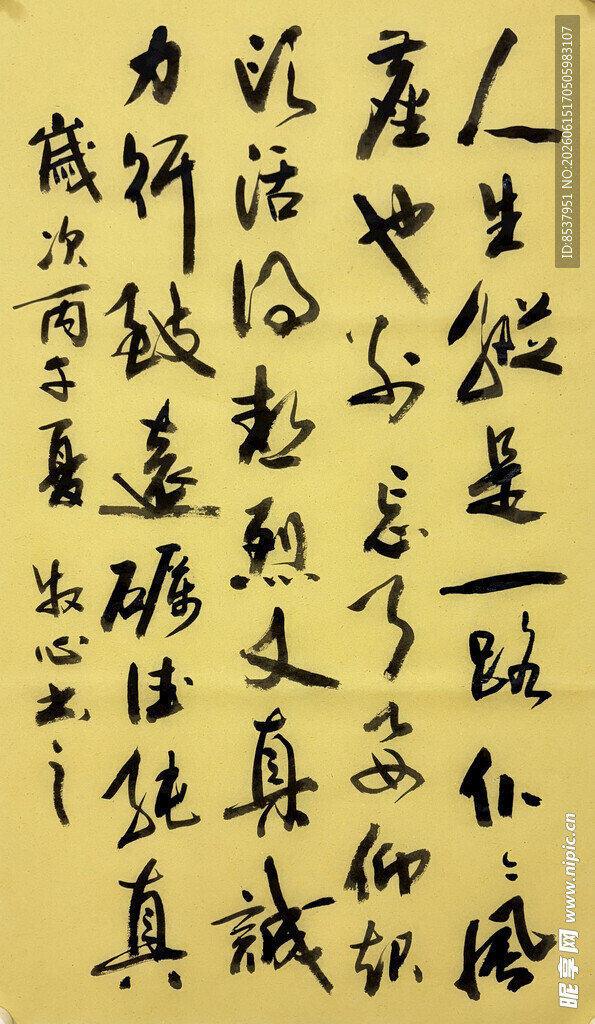 人生縱是一路仆仆風
塵也別忘了要仰起
頭活得熱烈又真誠
力行致遠礪德純真
歲次丙午夏 牧心书之
ID:8537951 NO:20260615170505983107
昵享网 www.nipic.cn